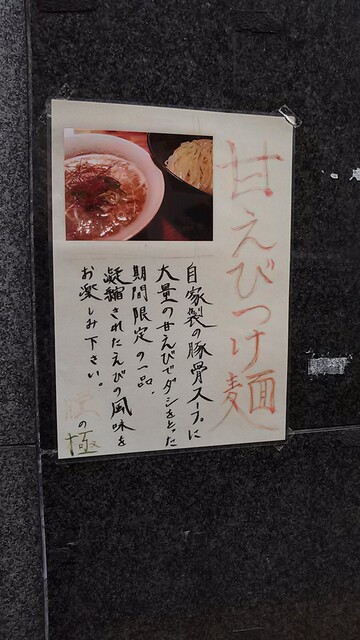 甘えびつけ麺
自家製の豚骨スープに
大量の甘えびでダシをとった
期間限定の一品。
凝縮されたえびの風味を
お楽しみ下さい。
の極